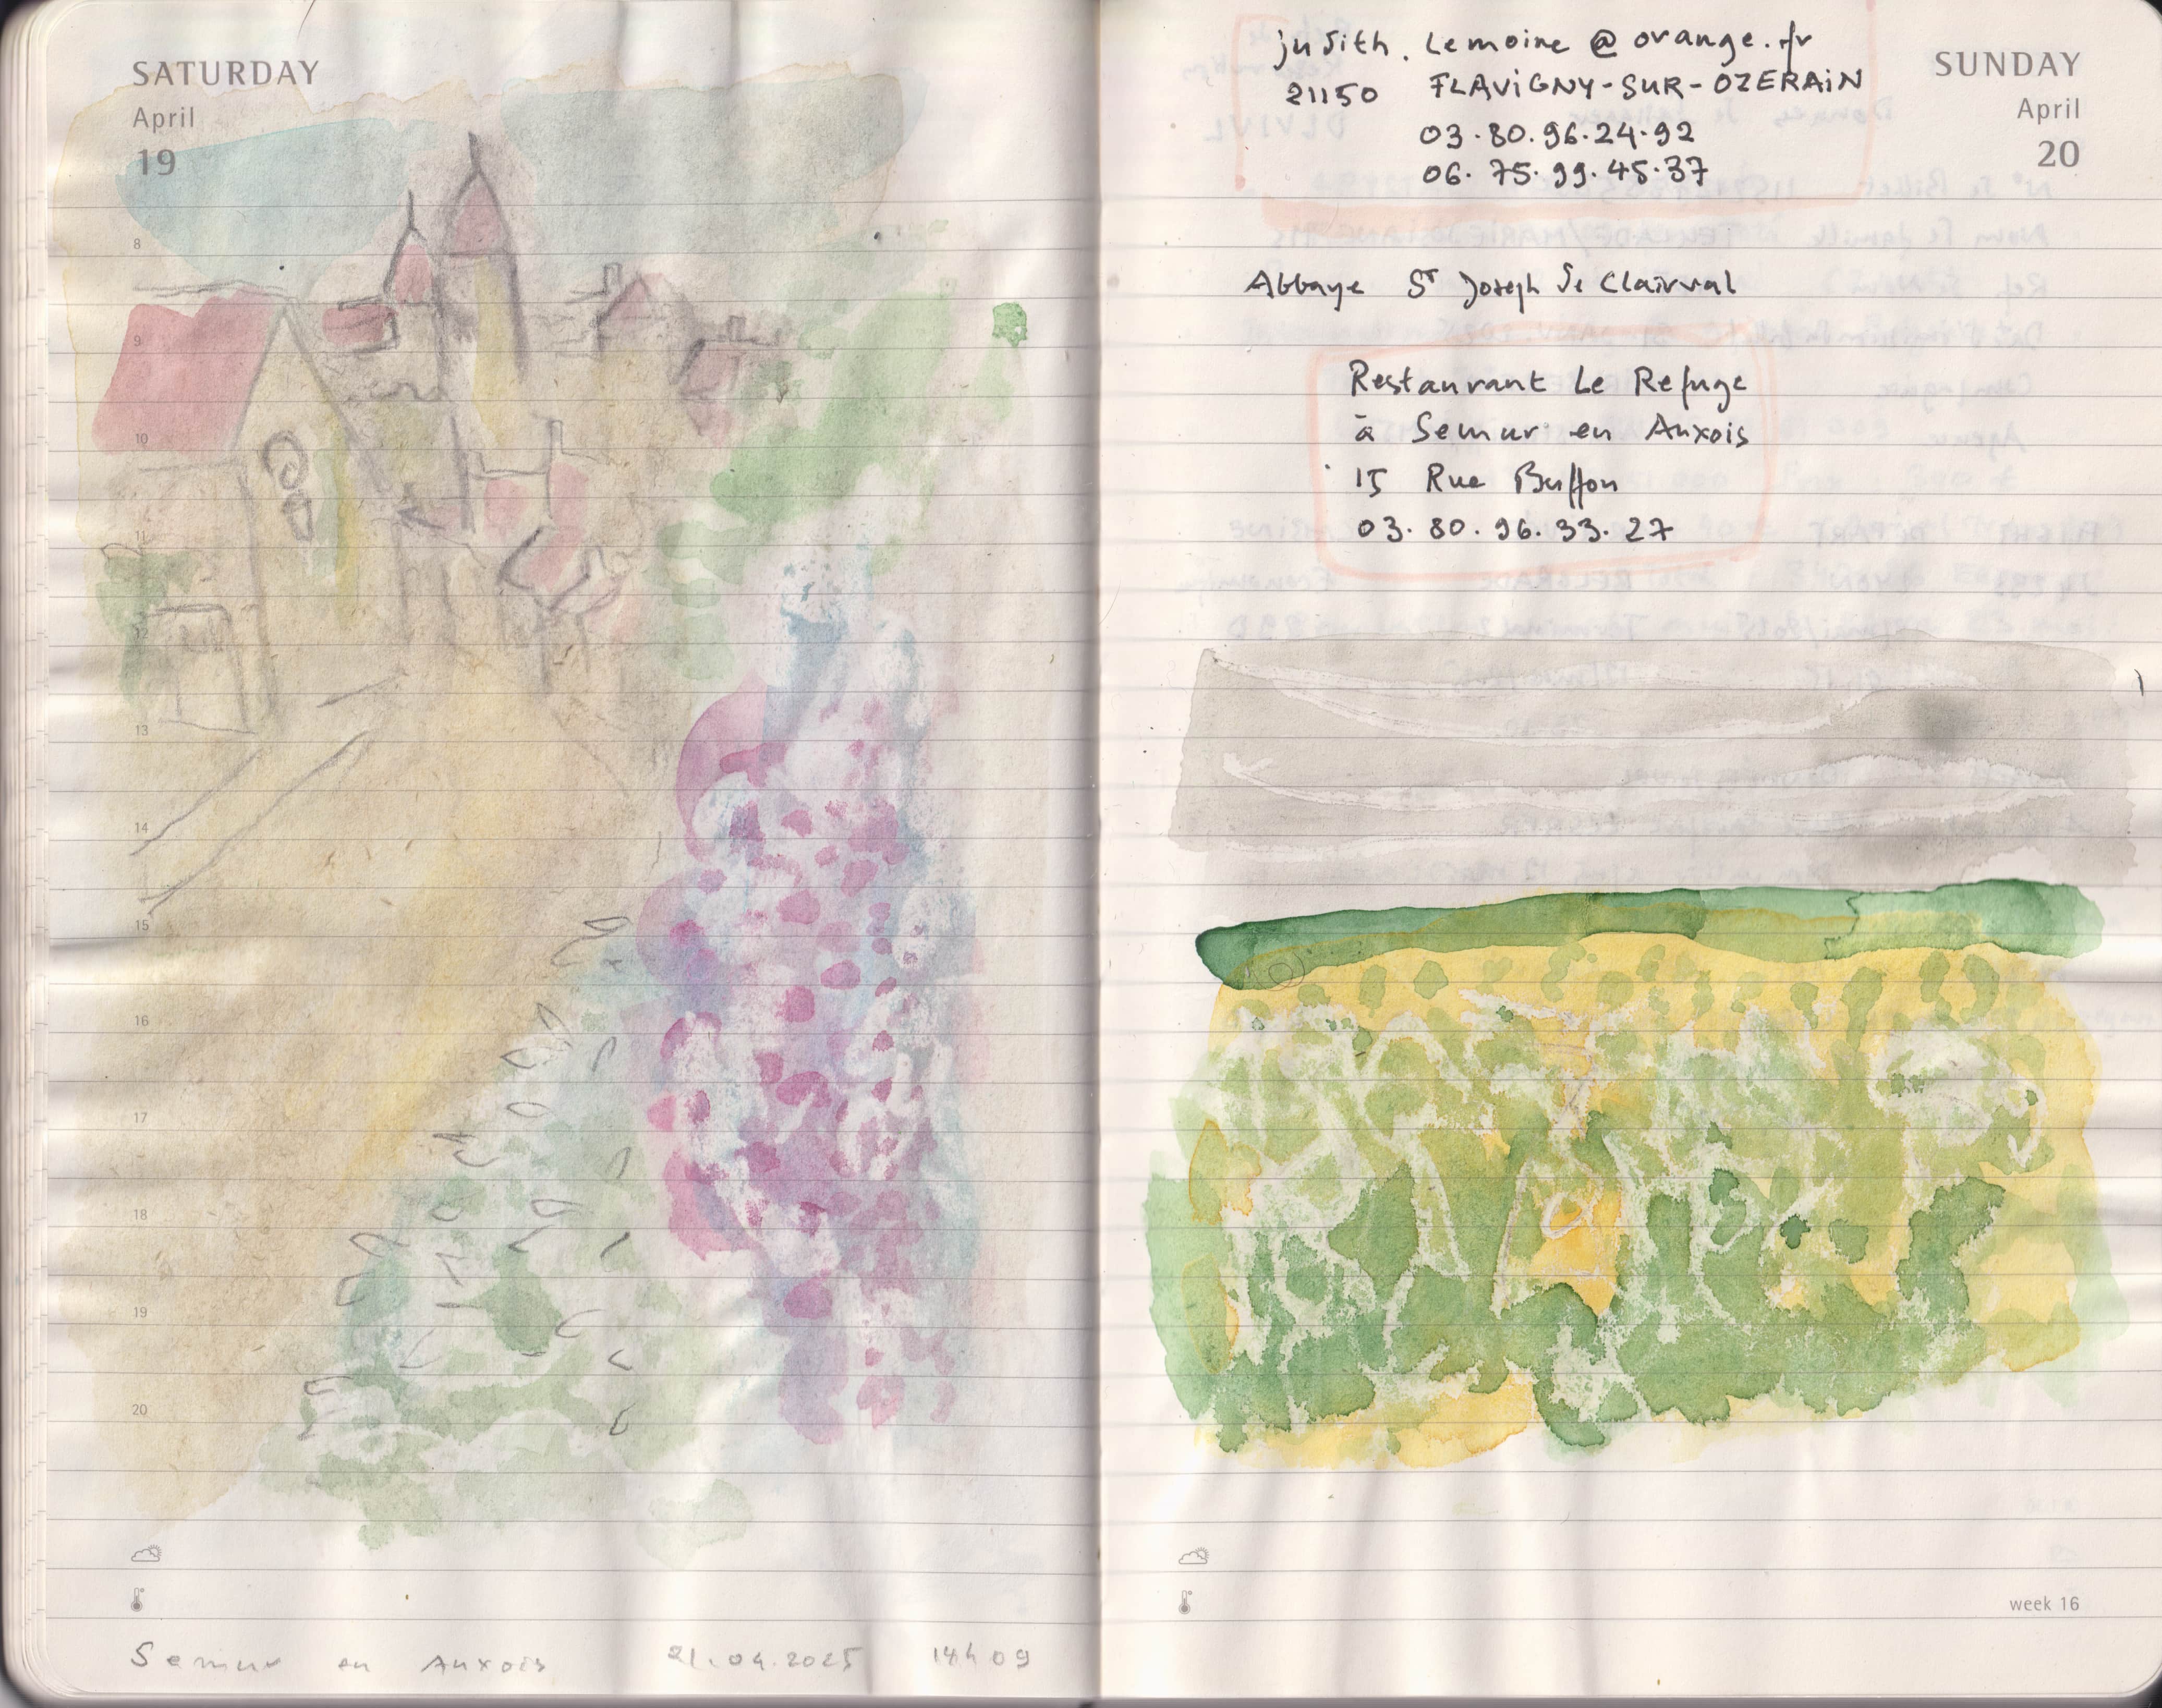 SATURDAY
April
19
8
9
10
11
12
13
14
15
16
17
18
19
20
Semur en Auxois 21.04.2025 14h09
judith.lemoine@orange.fr
21150 FLAViGNY-SUR-OZERAiN
03.80.96.24.92
06.75.99.45.37
SUNDAY
April
20
Abbaye St Joseph de Clairval
Restaurant Le Refuge
à Semur en Auxois
15 Rue Buffon
03.80.96.33.27
week 16